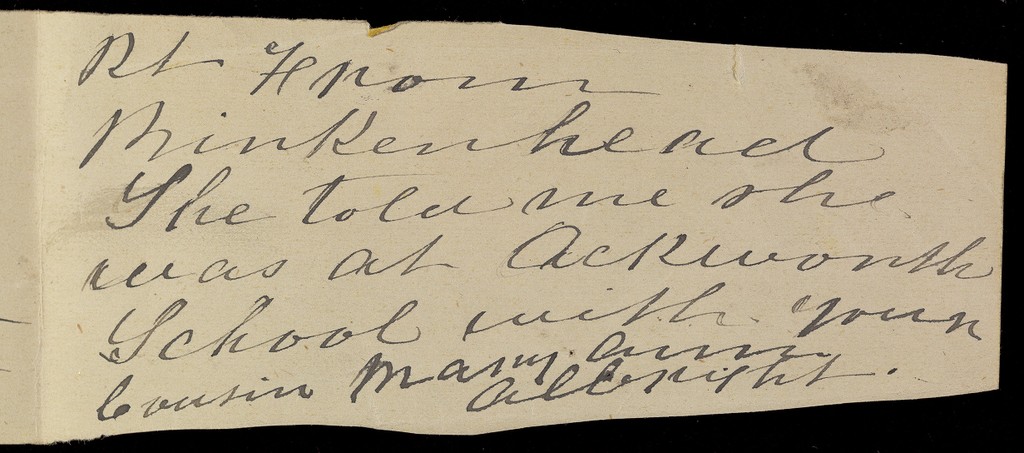 Rt From
Birkenhead
She told me she
was at Ackworth
School with your
Cousin Mary Ann
Allbright.